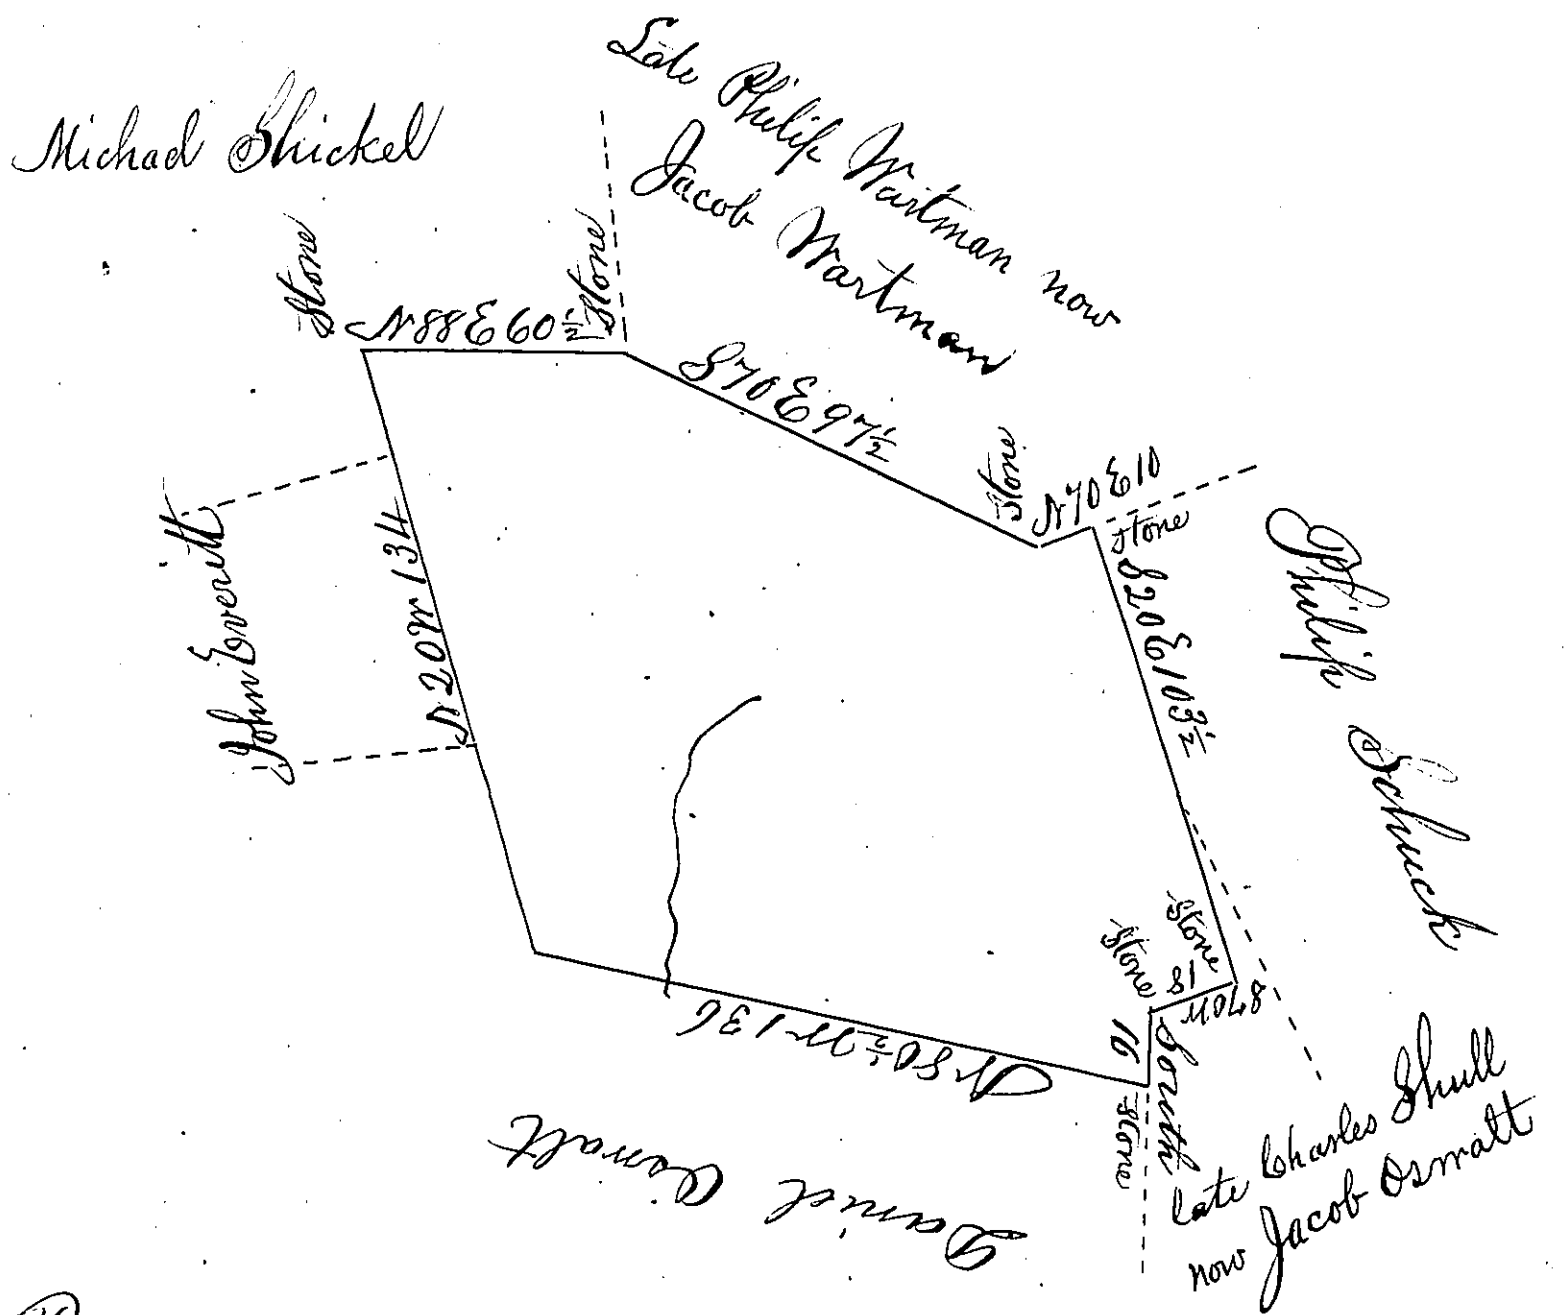 Michael Shickel
Late Philip Wartman now
Jacob Wartman
Stone
N88E 60½
Stone
S70E 97½
Stone
N70E10
Stone
S20E103½
Philip Schuck
John Everitt
N20W 134
Stone
Stone
18
S70W
16
South
Stone
N80½W 136
Daniel Oswalt
late Charles Shull
now Jacob Oswalt